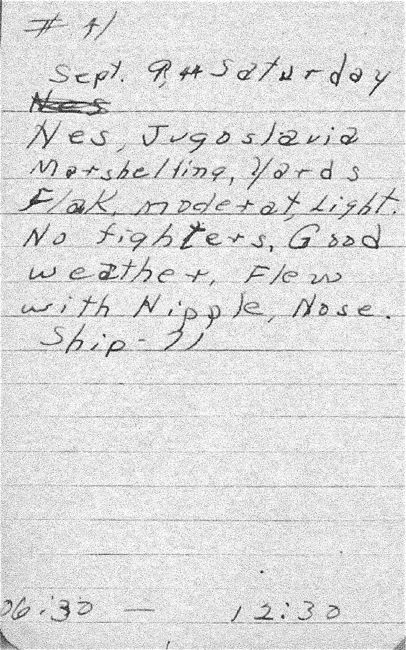 # 41
Sept. 9, 44 Saturday
Nes
Nes, Jugoslavia
Marshelling, Yards
Flak, moderat, Light.
No fighters, Good
weather, Flew
with Nipple, Nose.
Ship-
06:30 — 12:30